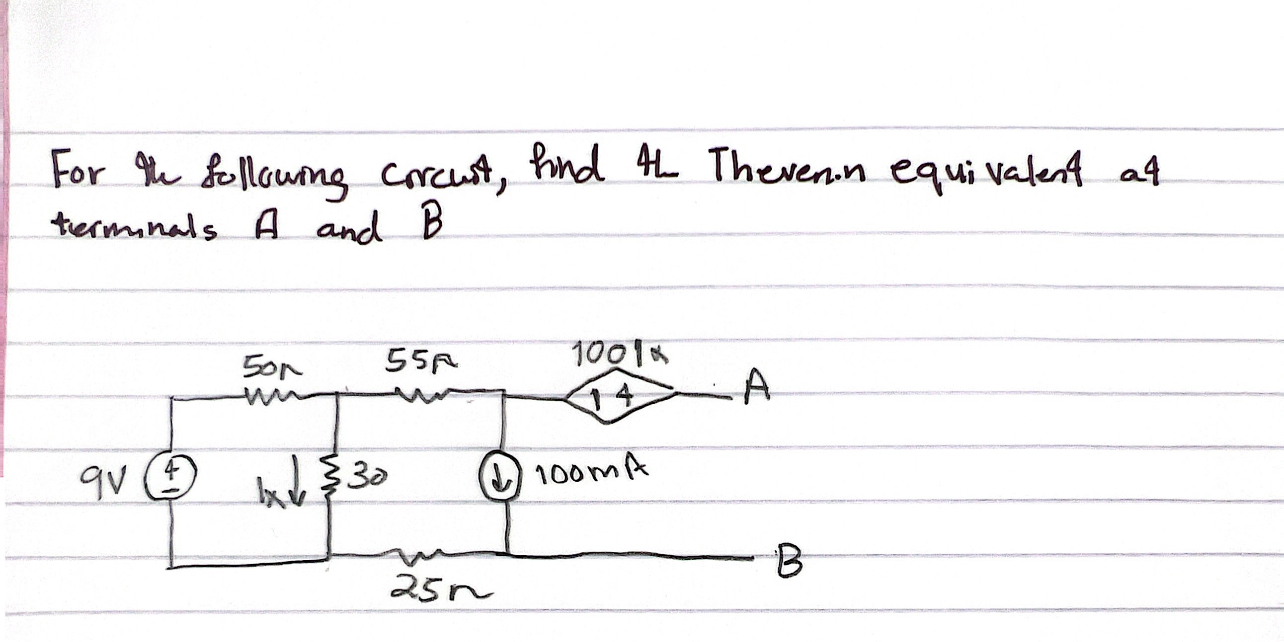 For the following circuit, find the Thevenin equivalent at
terminals A and B
50Ω 55Ω 100Ix
- + A
9V + - Ix ↓ 30 ↓ 100mA
B
25Ω